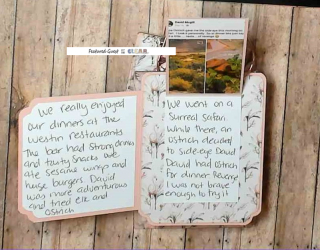 Featured Guest
We really enjoyed
our dinners at the
Westin restaurants
The bar had strong drinks
and tasty snacks. We
ate sesame wings and
huge burgers. David
was more adventurous
and tried elk and
ostrich
We went on a
Surreal safari
While there, an
ostrich decided
to side-eye David
David had ostrich
for dinner. Revenge
I was not brave
enough to try it